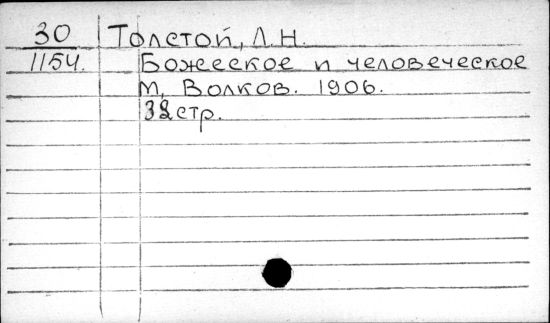 30 Толстой, Л.Н.
1154. Божеское и человеческое
М, Волков. 1906.
32 стр.